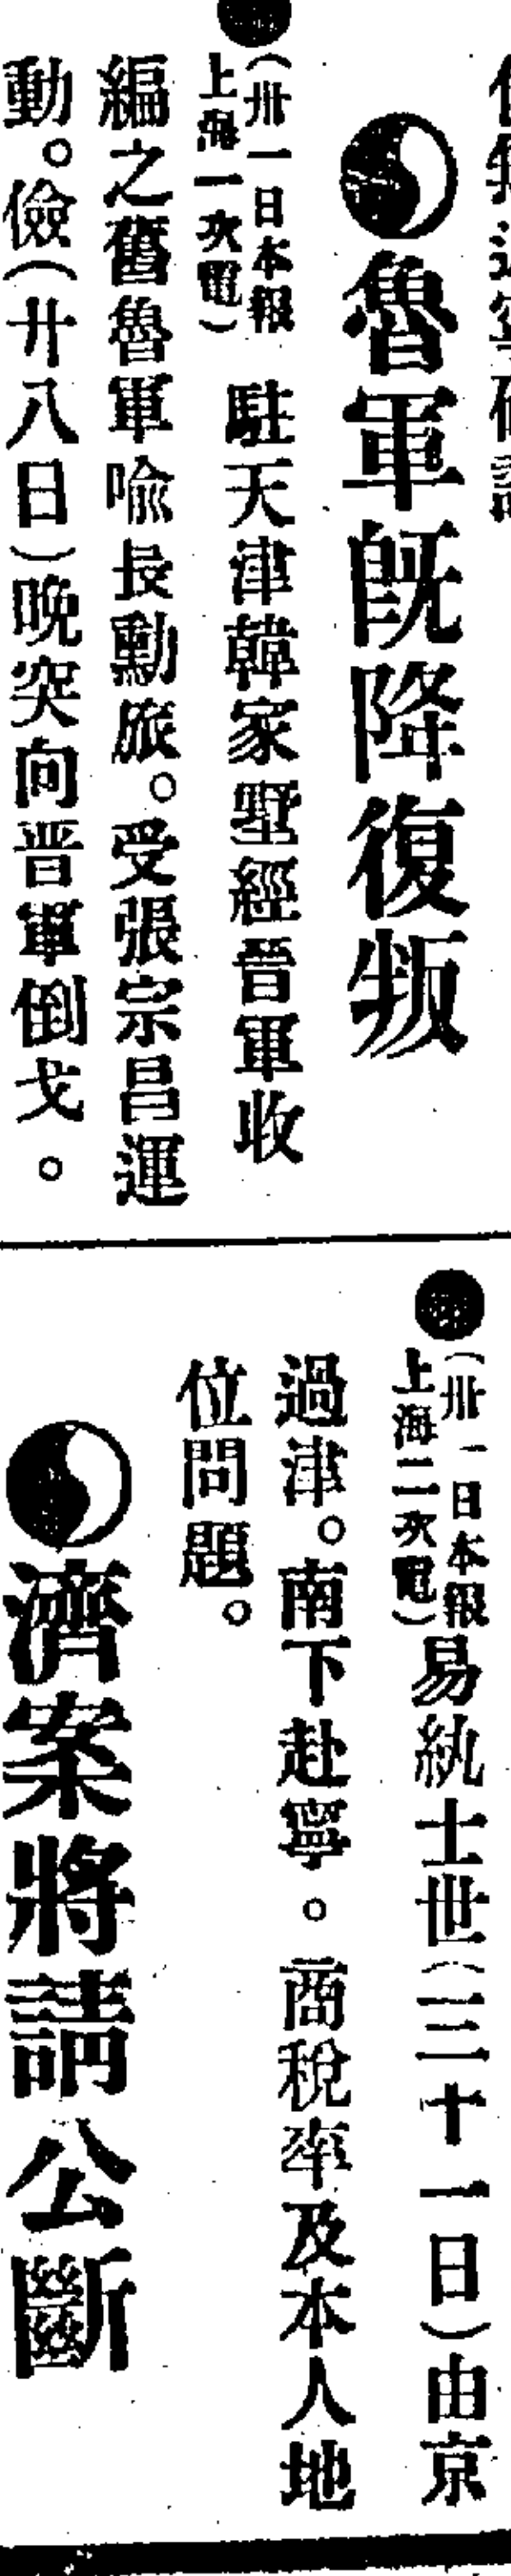 魯軍旣降復叛
(卅一日本報
上海一次電)
駐天津韓家墅經晉軍收
編之舊魯軍喻長勳旅。受張宗昌運
動。儉(廿八日)晚突向晋軍倒戈。
(卅一日本報
上海二次電)
易紈士世(三十一日)由京
過津。南下赴寧。商稅率及本人地
位問題。
濟案將請公斷